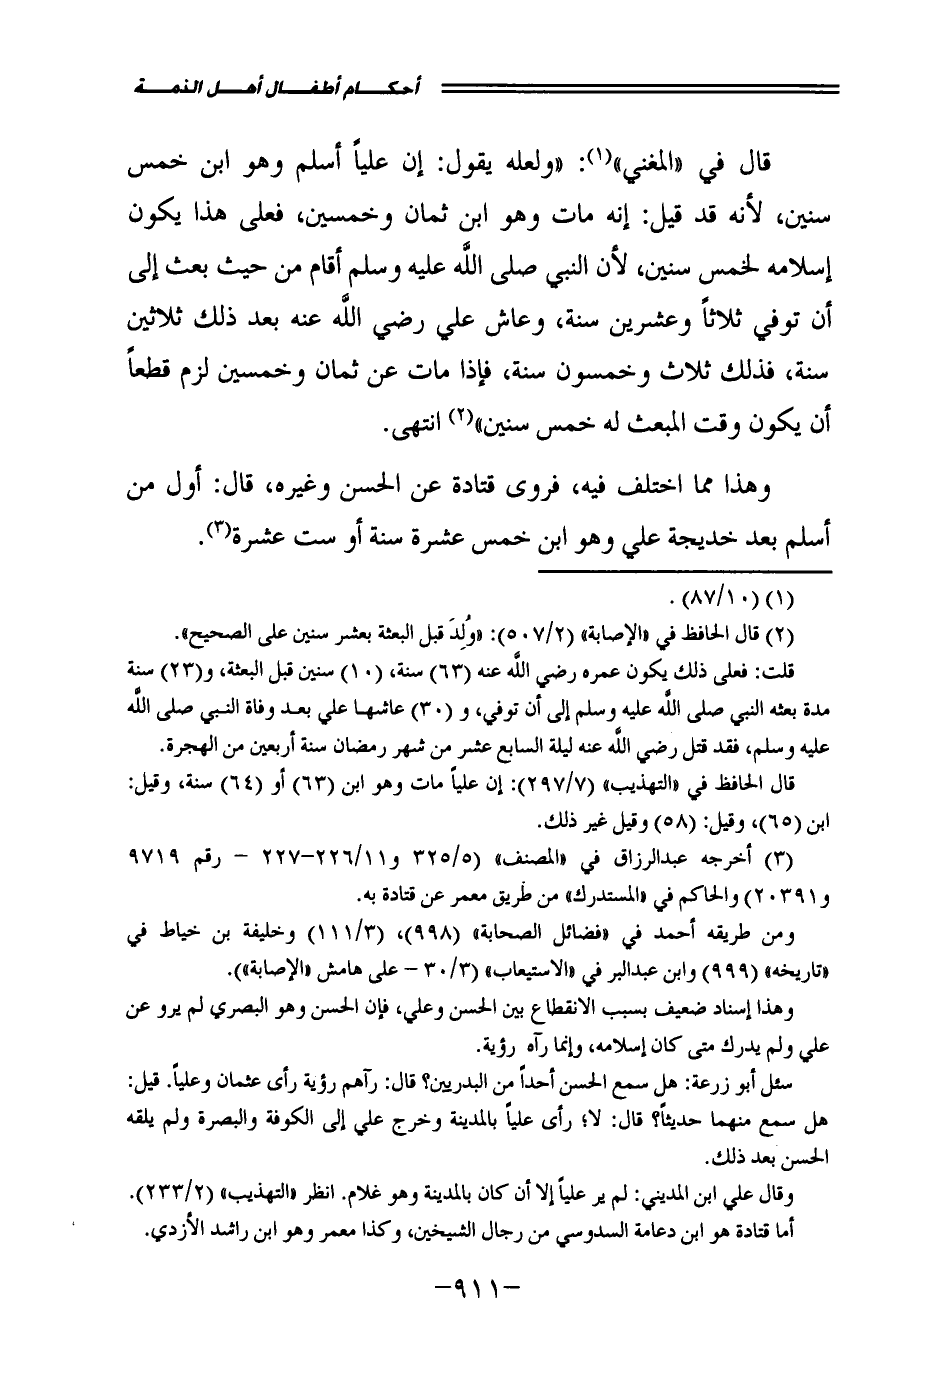 أحكـــام أطفـــال أهـــل الذمـــة
قال في «المغني»(١): «ولعله يقول: إن علياً أسلم وهو ابن خمس
سنين، لأنه قد قيل: إنه مات وهو ابن ثمان وخمسين، فعلى هذا يكون
إسلامه لخمس سنين، لأن النبي صلى اللَّه عليه وسلم أقام من حيث بعث إلى
أن توفي ثلاثاً وعشرين سنة، وعاش علي رضي اللَّه عنه بعد ذلك ثلاثين
سنة، فذلك ثلاث وخمسون سنة، فإذا مات عن ثمان وخمسين لزم قطعاً
أن يكون وقت المبعث له خمس سنين»(٢) انتهى.
وهذا مما اختلف فيه، فروى قتادة عن الحسن وغيره، قال: أول من
أسلم بعد خديجة علي وهو ابن خمس عشرة سنة أو ست عشرة(٣).
(١) (٨٧/١٠) .
(٢) قال الحافظ في «الإصابة» (٥٠٧/٢): «وُلِدَ قبل البعثة بعشر سنين على الصحيح».
قلت: فعلى ذلك يكون عمره رضي اللَّه عنه (٦٣) سنة، (١٠) سنين قبل البعثة، و(٢٣) سنة
مدة بعثه النبي صلى اللَّه عليه وسلم إلى أن توفي، و (٣٠) عاشها علي بعد وفاة النبي صلى اللَّه
عليه وسلم، فقد قتل رضي اللَّه عنه ليلة السابع عشر من شهر رمضان سنة أربعين من الهجرة.
قال الحافظ في «التهذيب» (٢٩٧/٧): إن علياً مات وهو ابن (٦٣) أو (٦٤) سنة، وقيل:
ابن (٦٥)، وقيل: (٥٨) وقيل غير ذلك.
(٣) أخرجه عبدالرزاق في «المصنف» (٣٢٥/٥ و٢٢٦/١١-٢٢٧ - رقم ٩٧١٩
و٢٠٣٩١) والحاكم في «المستدرك» من طريق معمر عن قتادة به.
ومن طريقه أحمد في «فضائل الصحابة» (٩٩٨)، (١١١/٣) وخليفة بن خياط في
«تاريخه» (٩٩٩) وابن عبدالبر في «الاستيعاب» (٣٠/٣ - على هامش «الإصابة»).
وهذا إسناد ضعيف بسبب الانقطاع بين الحسن وعلي، فإن الحسن وهو البصري لم يرو عن
علي ولم يدرك متى كان إسلامه، وإنما رآه رؤية.
سئل أبو زرعة: هل سمع الحسن أحداً من البدريين؟ قال: رآهم رؤية رأى عثمان وعلياً. قيل:
هل سمع منهما حديثاً؟ قال: لا؛ رأى علياً بالمدينة وخرج علي إلى الكوفة والبصرة ولم يلقه
الحسن بعد ذلك.
وقال علي ابن المديني: لم ير علياً إلا أن كان بالمدينة وهو غلام. انظر «التهذيب» (٢٣٣/٢).
أما قتادة هو ابن دعامة السدوسي من رجال الشيخين، وكذا معمر وهو ابن راشد الأزدي.
-٩١١-